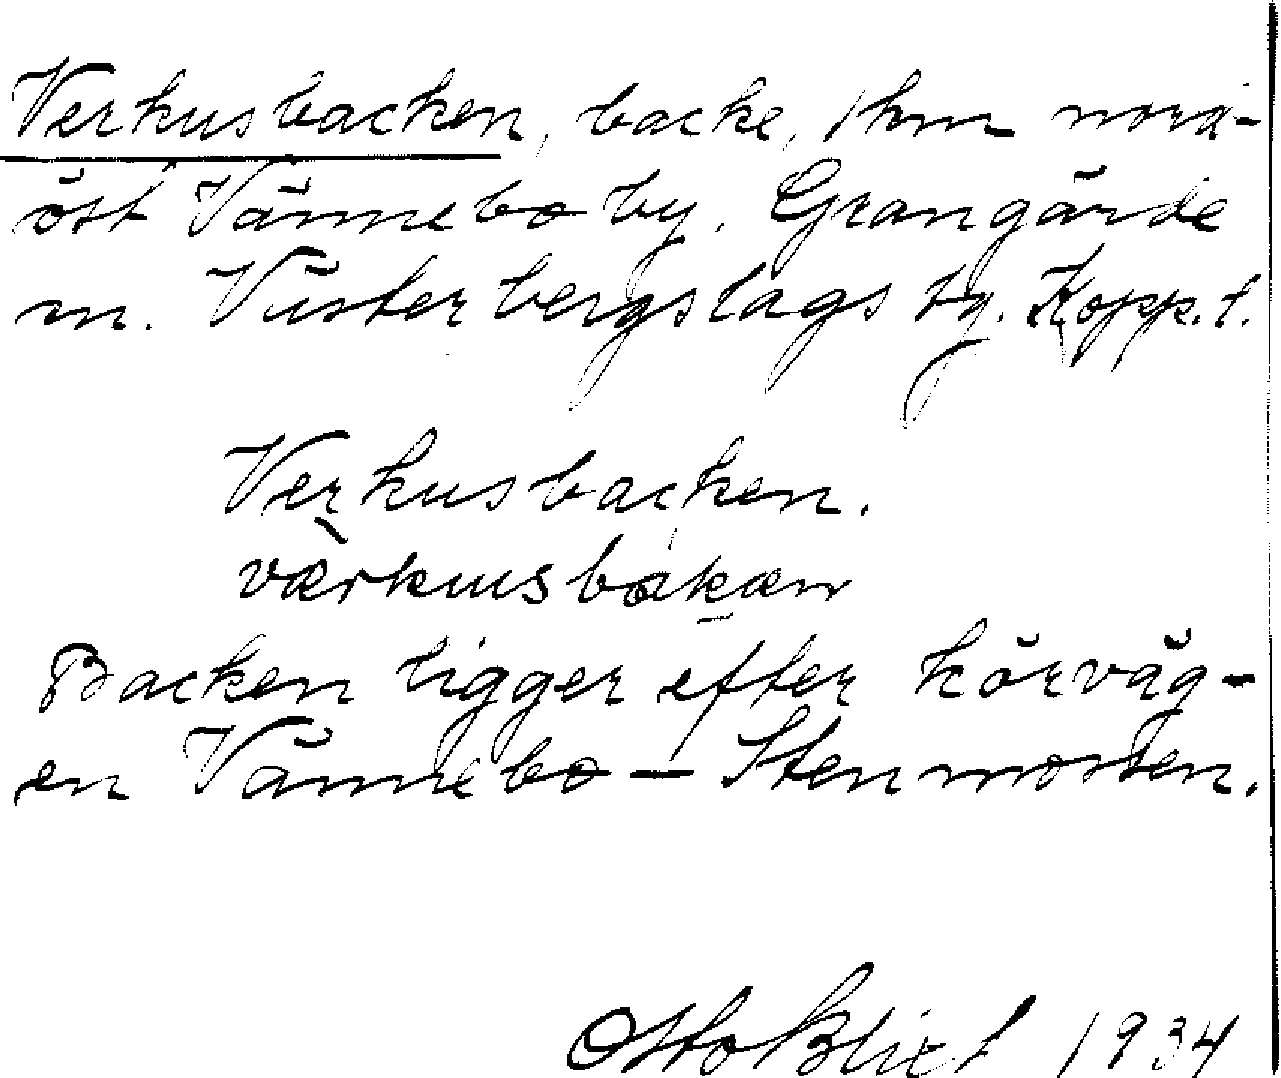 Verkusbacken, backe, 1 km nord-
öst Vännebo by. Grangärde
sn. Västerbergslags tg. Kopp. l.
Verkusbacken.
værkusbakæn
Backen ligger efter körväg-
en Vännebo – Stenmosten.
Otto Blixt 1934